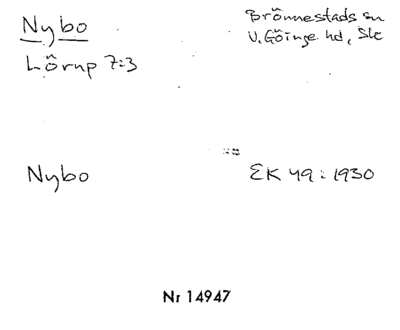 Nybo
Brönnestads sn
V. Göinge hd, Sk
Lörup 7:3
Nybo
EK 49:1930
Nr 14947